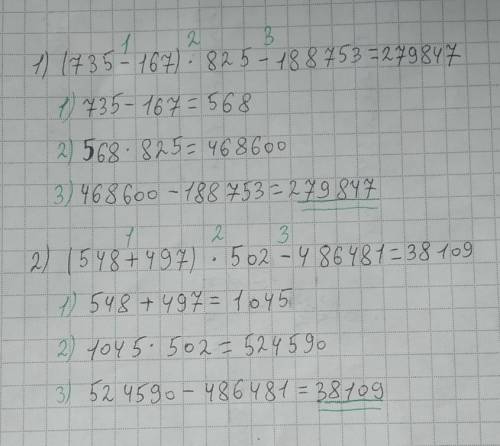 1 2 3
1) (735-167) · 825-188753=279847
1) 735-167=568
2) 568·825=468600
3) 468600-188753=279847
1 2 3
2) (548+497) · 502-486481=38109
1) 548+497=1045
2) 1045·502=524590
3) 524590-486481=38109